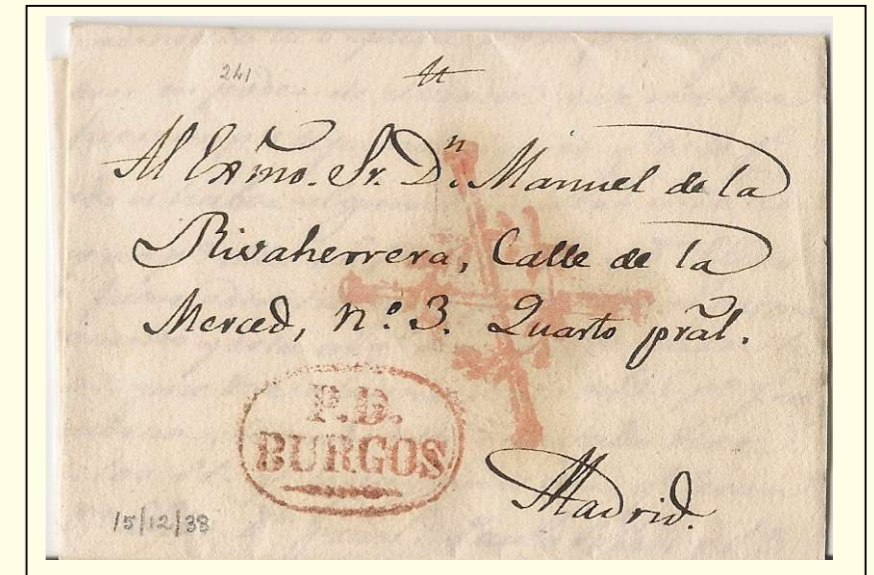 241
Al Exmo. Sr. Dn. Manuel de la
Rivaherrera, Calle de la
Merced, nº. 3. Quarto pral.
P.D.
BURGOS
Madrid.
15/12/38